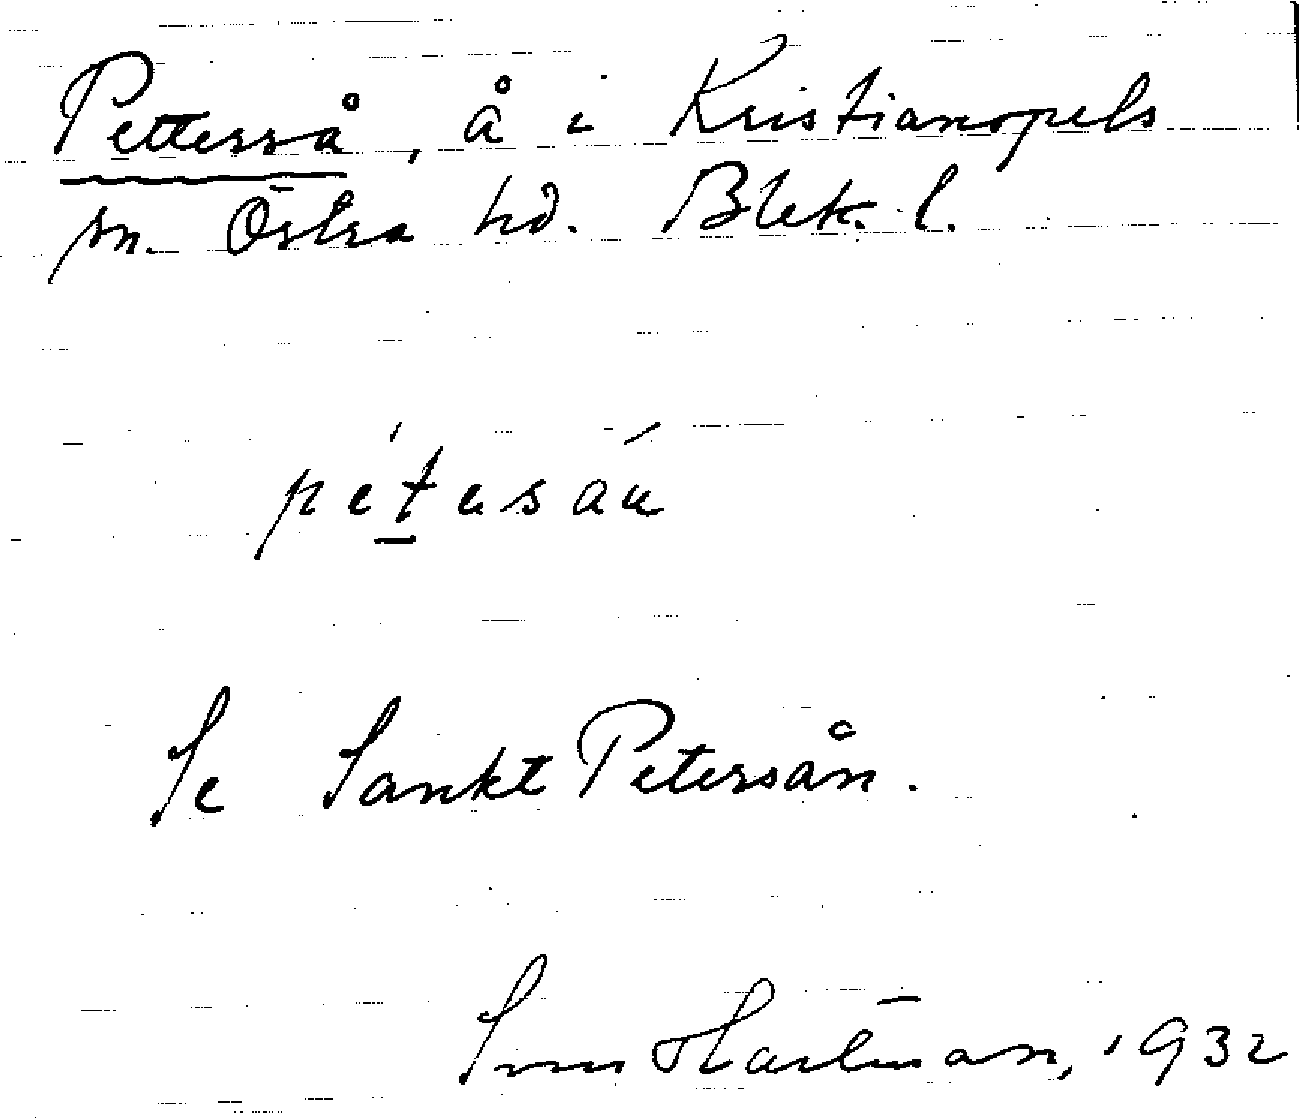 Petterså, å i Kristianopels
sn. Östra hd. Blek. l.
Se Sankt Petersån.
Sven Hartman, 1932